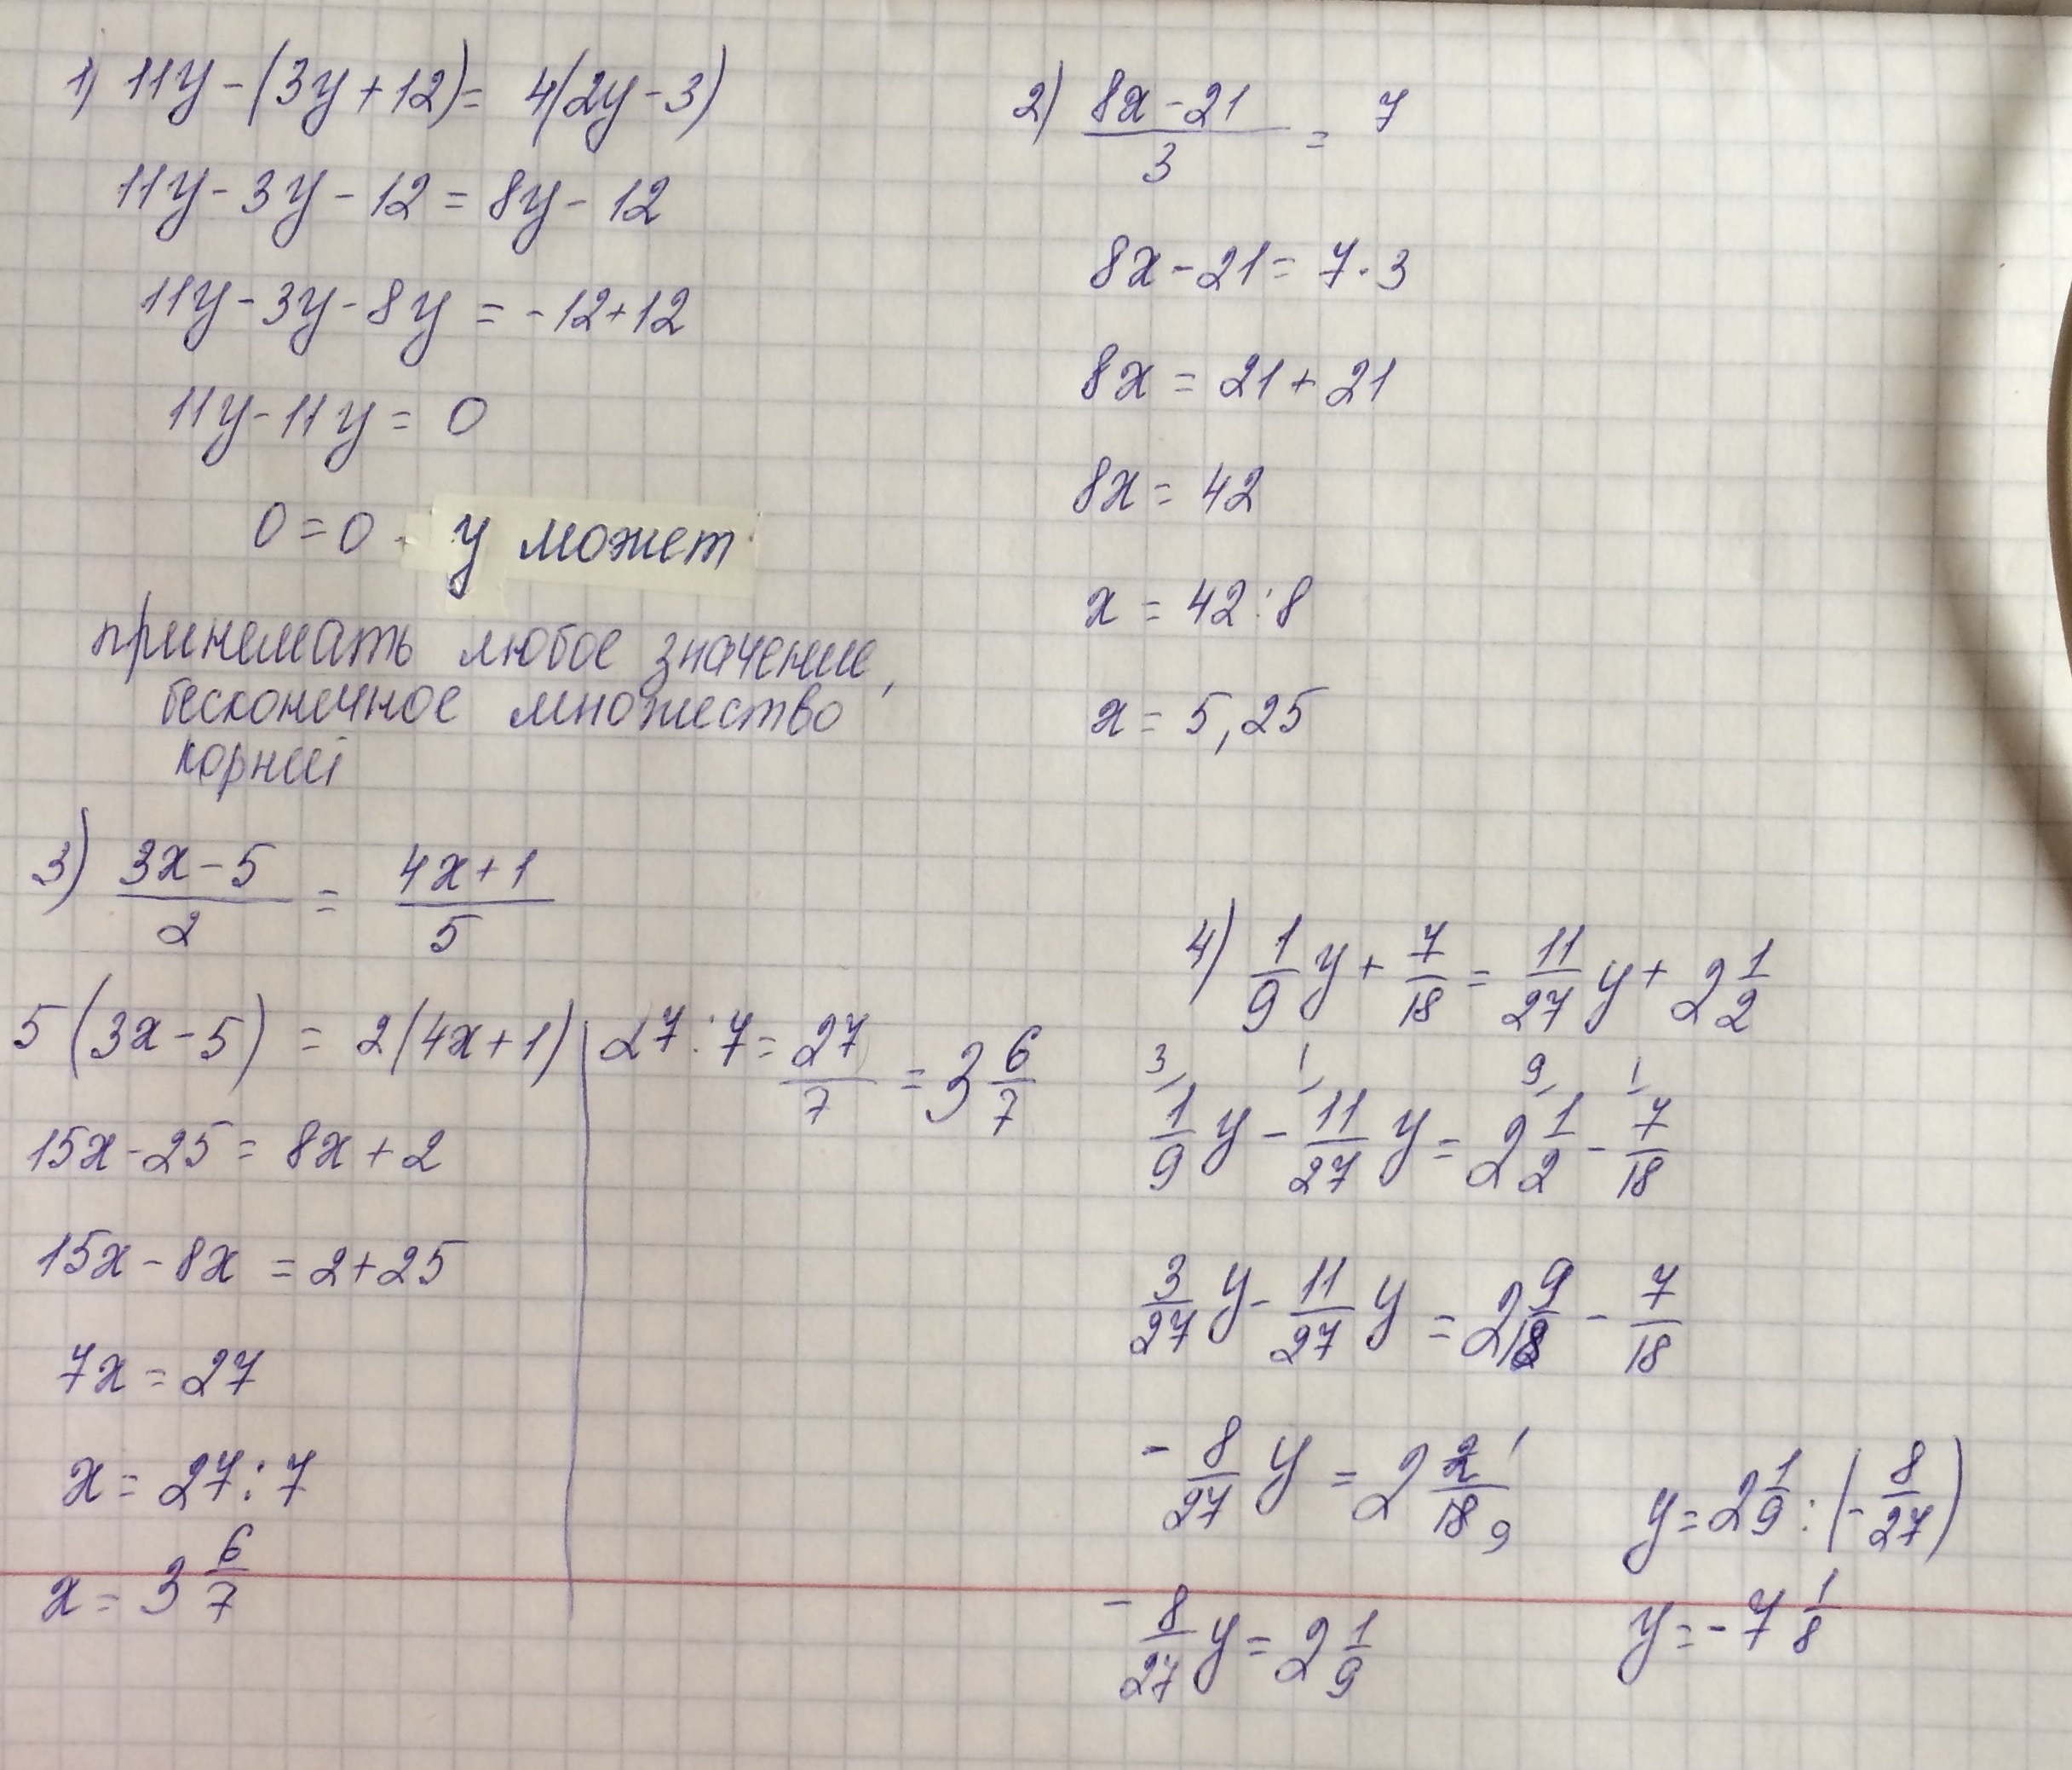 1) 11y - (3y + 12) = 4(2y - 3)
11y - 3y - 12 = 8y - 12
11y - 3y - 8y = -12 + 12
11y - 11y = 0
0 = 0 - y может
принемать любое значение,
бесконечное множество
корней
2) \frac{8x - 21}{3} = 7
8x - 21 = 7 · 3
8x = 21 + 21
8x = 42
x = 42 : 8
x = 5,25
3) \frac{3x - 5}{2} = \frac{4x + 1}{5}
5(3x - 5) = 2(4x + 1)
15x - 25 = 8x + 2
15x - 8x = 2 + 25
7x = 27
x = 27 : 7
x = 3 \frac{6}{7}
27 : 7 = \frac{27}{7} = 3 \frac{6}{7}
4) \frac{1}{9} y + \frac{7}{18} = \frac{11}{27} y + 2 \frac{1}{2}
3 1 9 1
\frac{1}{9} y - \frac{11}{27} y = 2 \frac{1}{2} - \frac{7}{18}
\frac{3}{27} y - \frac{11}{27} y = 2 \frac{9}{18} - \frac{7}{18}
- \frac{8}{27} y = 2 \frac{2}{18} 1 9
- \frac{8}{27} y = 2 \frac{1}{9}
y = 2 \frac{1}{9} : (- \frac{8}{27})
y = -7 \frac{1}{8}